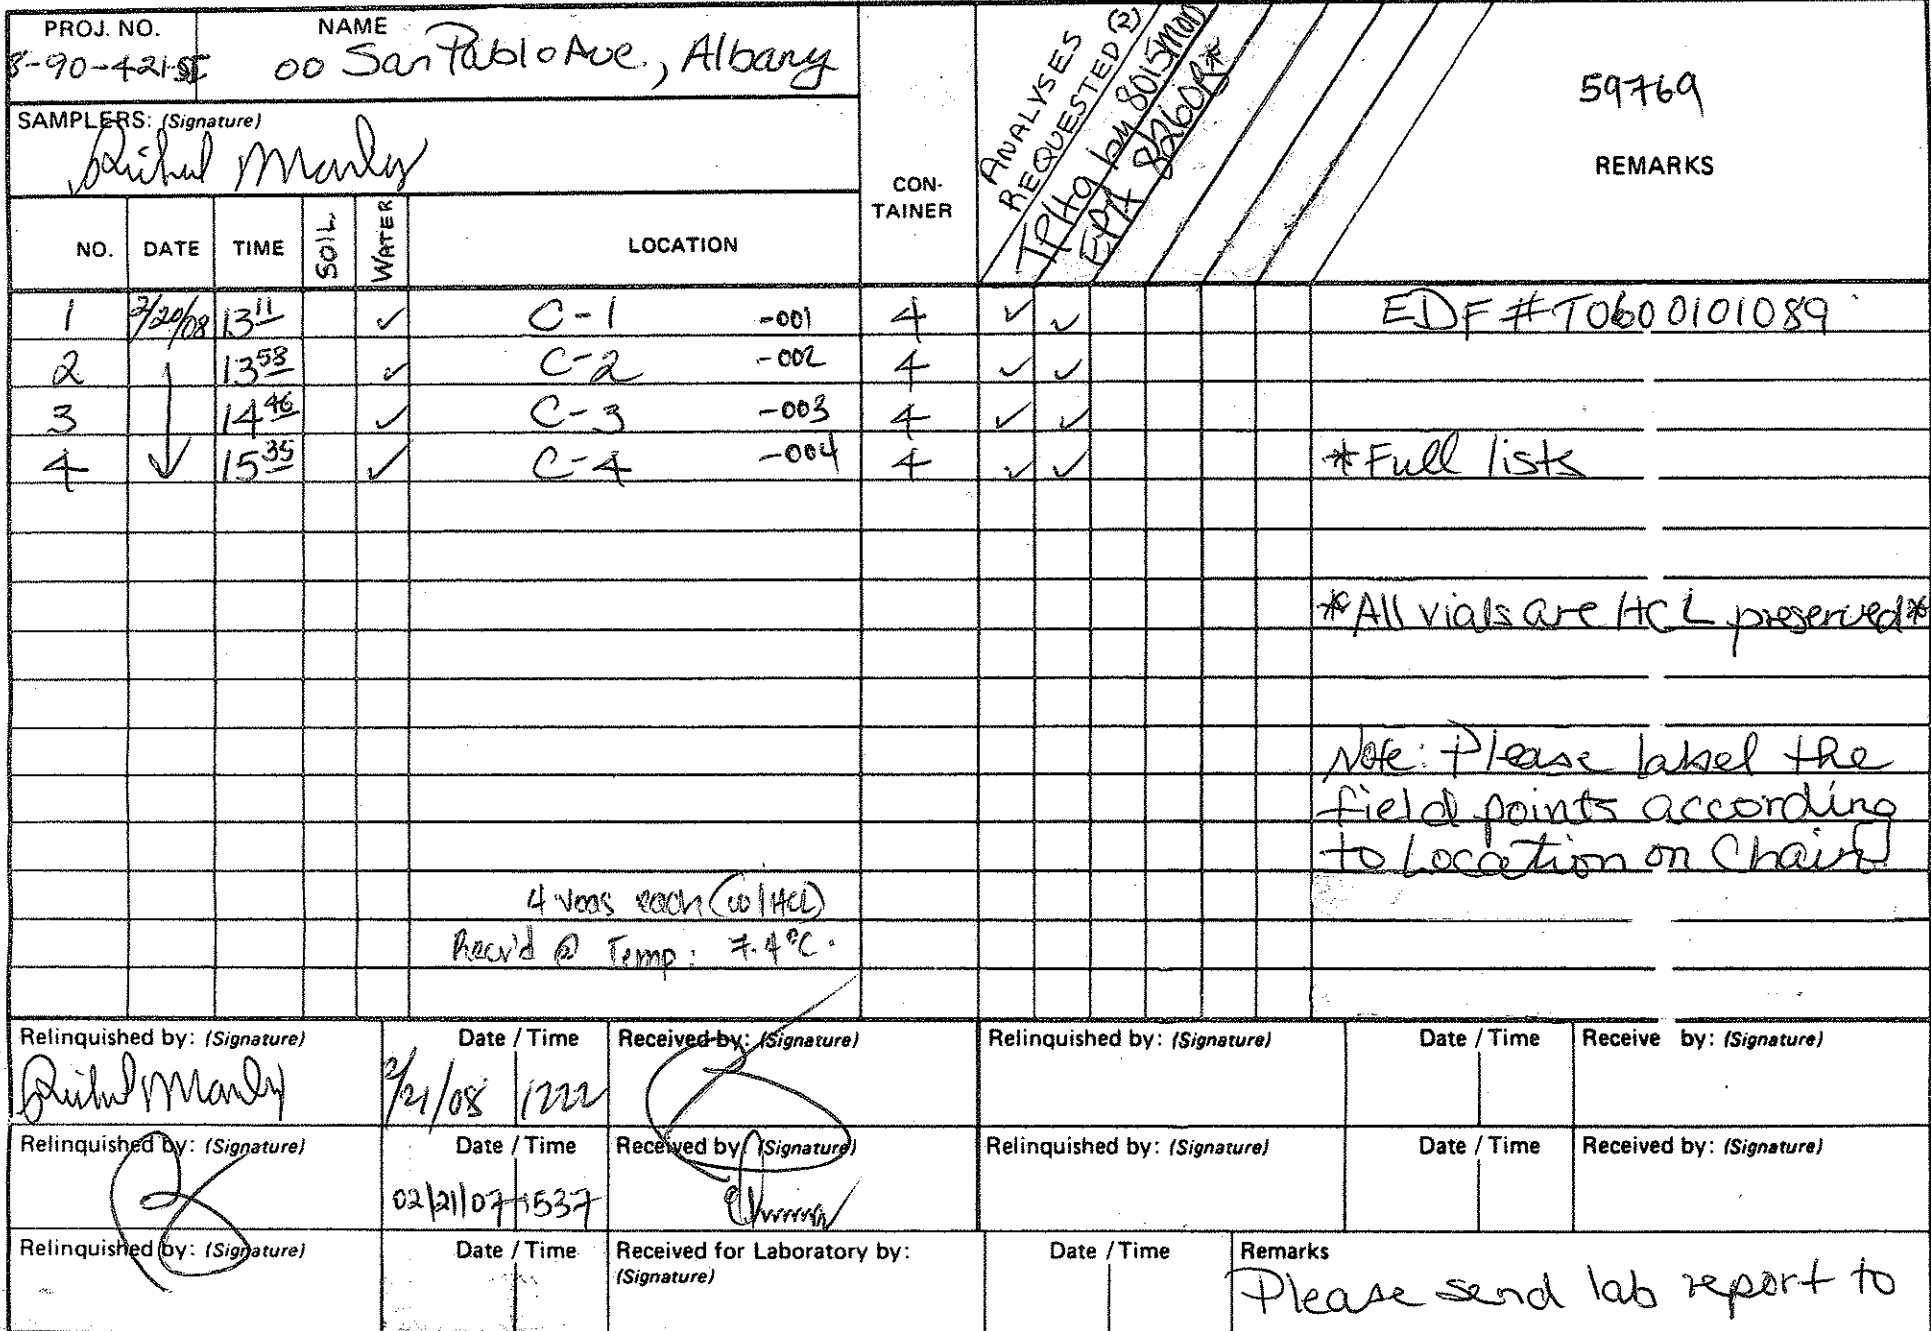 PROJ. NO. NAME
3-90-421-SI 00 San Pablo Ave., Albany
SAMPLERS: (Signature)
ANALYSES REQUESTED (2)
TPHg by 8015Mod
EPA 8260B*
CON-
TAINER
59769
REMARKS
NO. DATE TIME SOIL WATER LOCATION
1 2/20/08 13 11 ✓ C-1 -001 4 ✓ ✓ EDF #T0600101089
2 13 58 ✓ C-2 -002 4 ✓ ✓
3 14 46 ✓ C-3 -003 4 ✓ ✓
4 15 35 ✓ C-4 -004 4 ✓ ✓ *Full lists
*All vials are HCL preserved*
Note: Please label the
field points according
to Location on Chain
4 voas each (w/HCL)
Recv'd @ Temp: 7.4°C.
Relinquished by: (Signature) Date / Time Received by: (Signature) Relinquished by: (Signature) Date / Time Receive by: (Signature)
2/21/08 1222
Relinquished by: (Signature) Date / Time Received by: (Signature) Relinquished by: (Signature) Date / Time Received by: (Signature)
02/21/07 1537
Relinquished by: (Signature) Date / Time Received for Laboratory by: (Signature) Date / Time Remarks
Please send lab report to